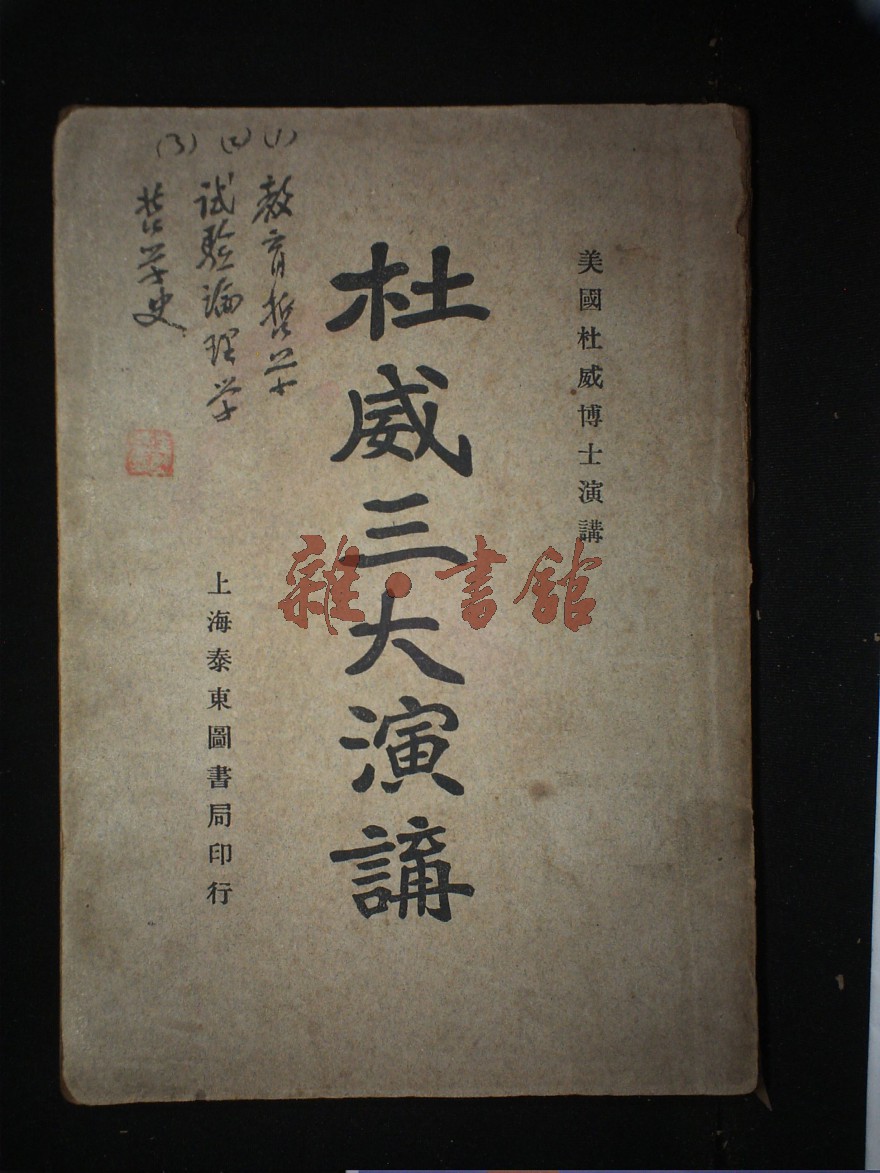 美國杜威博士演講
杜威三大演講
(1) 教育哲学
(2) 试验論理学
(3) 哲学史
上海泰東圖書局印行
雜·書館